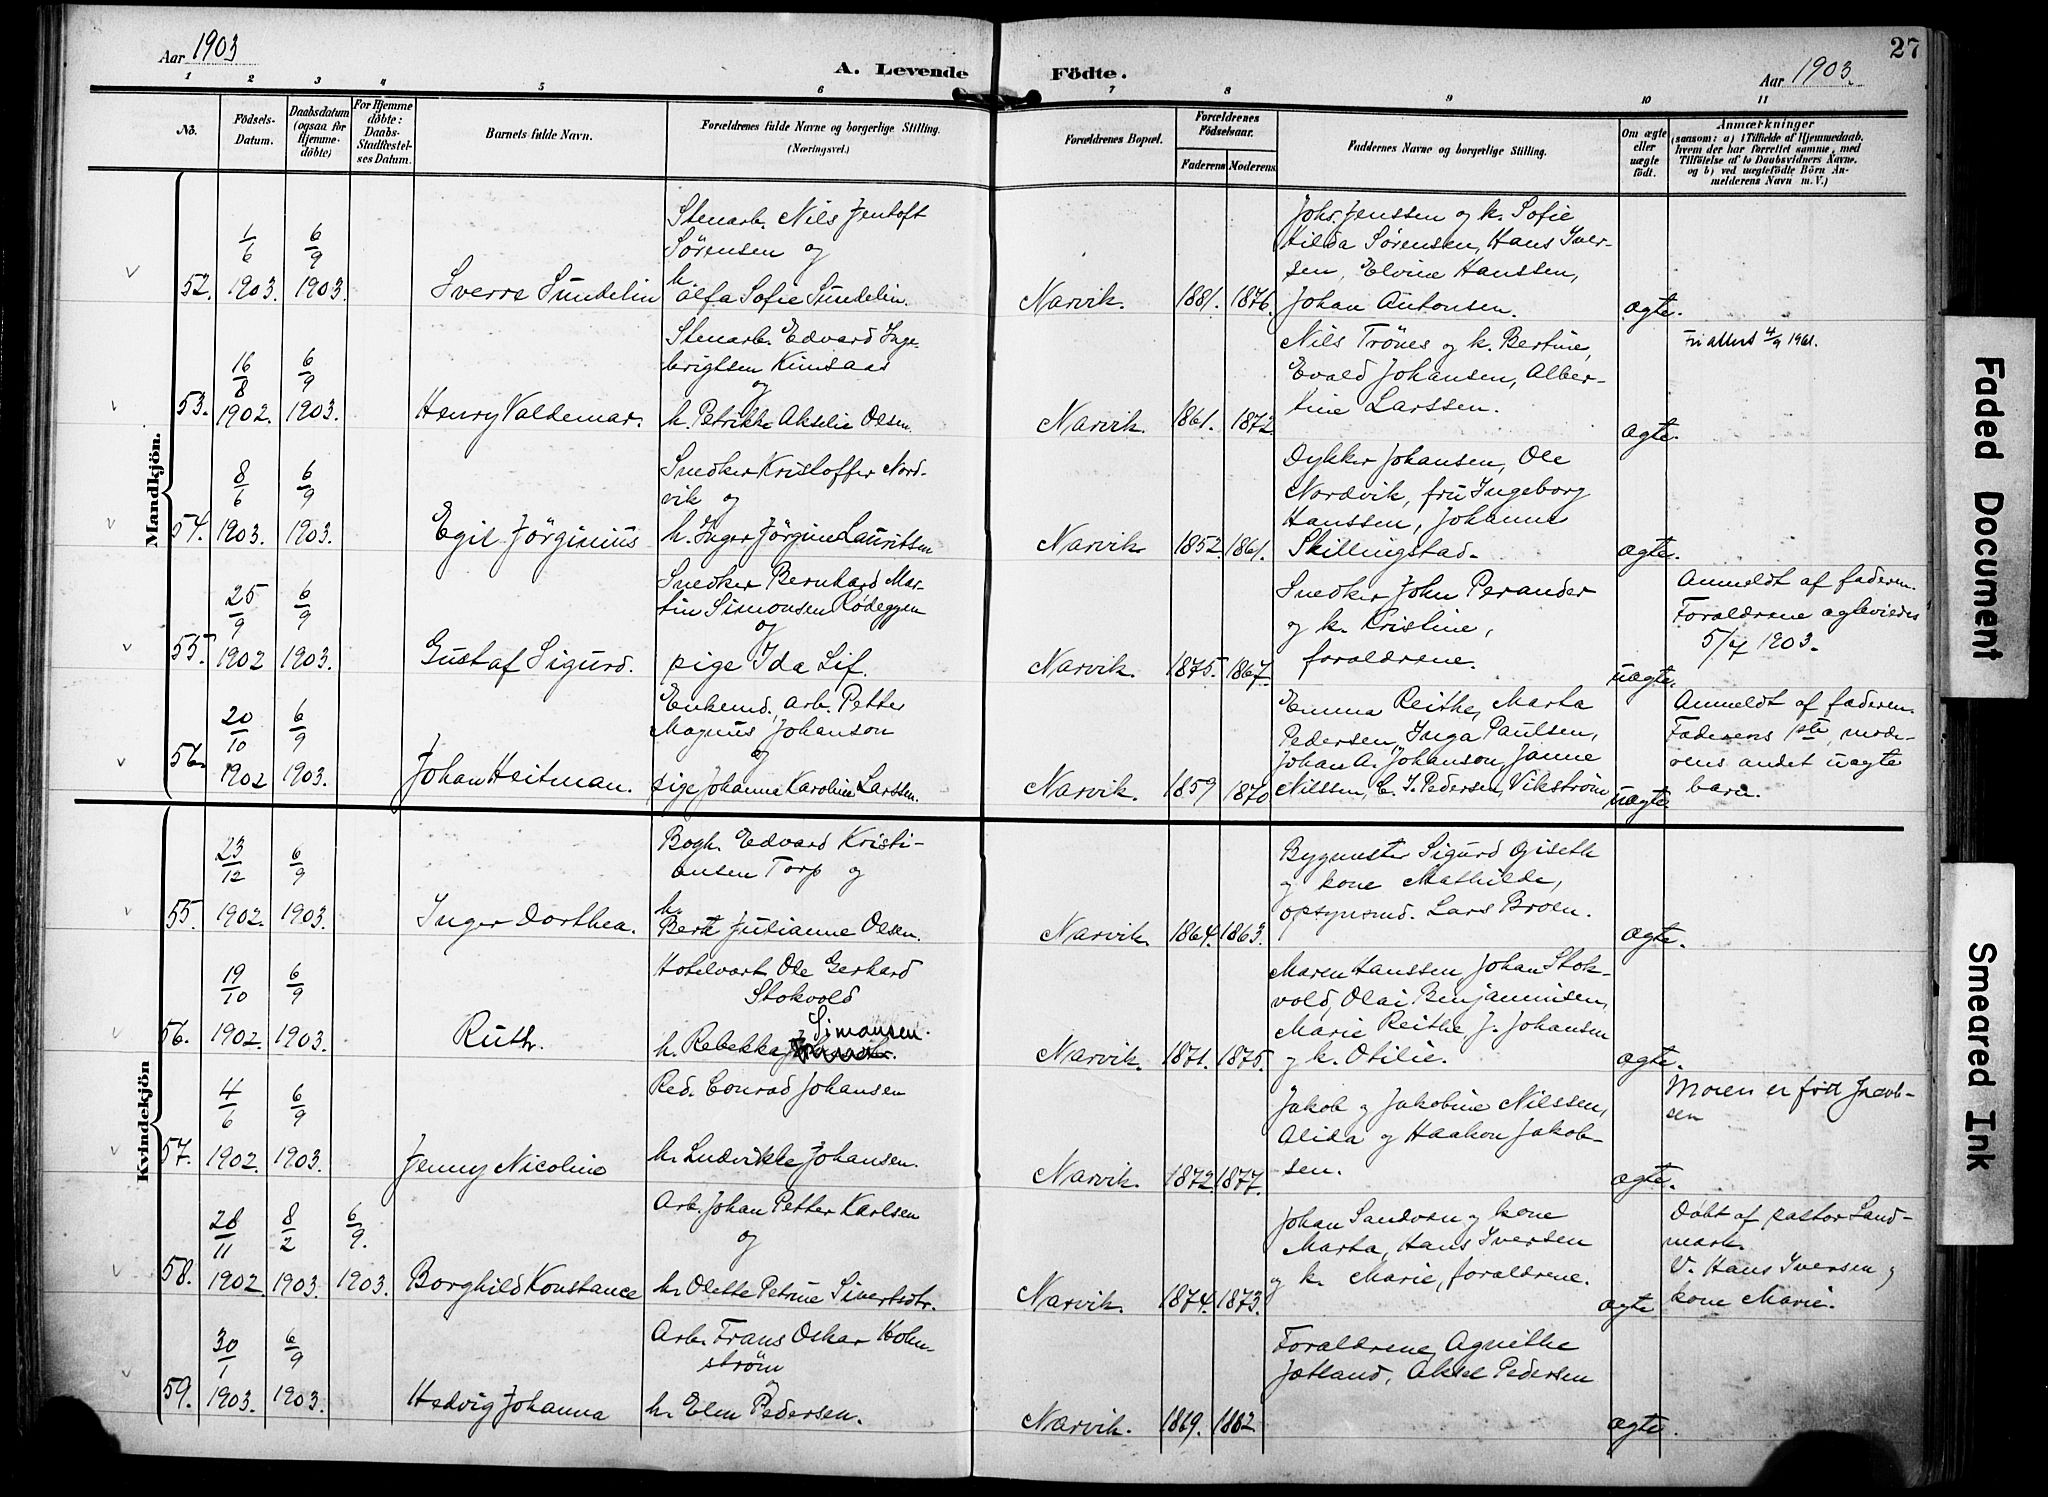 Aar 1903
A. Levende Födte.
Aar 1903.
27
1 2 3 4 5 6 7 8 9 10 11
No.
Födsels-
Datum.
Daabsdatum
(ogsaa for
Hjemme-
döbte)
For Hjemme
döbte:
Daabs-
Stadfæstel-
ses Datum.
Barnets fulde Navn.
Forældrenes fulde Navne og borgerlige Stilling.
(Næringsvei.)
Forældrenes Bopæl.
Forældrenes
Födselsaar.
Faderens Moderens
Faddernes Navne og borgerlige Stilling.
Om ægte
eller
uægte
födt.
Anmærkninger
(saasom: a) i Tilfælde af Hjemmedaab.
hvem der har forrettet samme, med
Tilföielse af to Daabsvidners Navne.
og b) ved uægtefödte Börn An-
melderens Navn m. V.)
Mandkjön.
52.
1/6
1903.
6/9
1903.
Sverre Sundelin
Stenarb. Nils Jentoft
Sörensen og
h.
Alfa Sofie Sundelin.
Narvik.
1881.
1876.
Johs. Jenssen og k. Sofie
Hilda Sørensen, Hans Iver-
sen, Elvine Hanssen,
Johan Antonsen.
ægte.
53.
16/8
1902.
6/9
1903.
Henry Valdemar.
Stenarb. Edvard Inge-
brigtsen Kinsaas
og
h. Petrikke Akselie Olsen.
Narvik.
1861.
1872.
Nils Trönes og k. Bertine,
Evald Johansen, Alber-
tine Larssen.
ægte.
Fri attest 4/9 1961.
54.
8/6
1903.
6/9
1903.
Egil Jörginius
Snedker Kristoffer Nord-
vik og
h. Inger Jörgine Lauritsen
Narvik
1852.
1861.
Dykker Johansen, Ole
Nordvik, fru Ingeborg
Hanssen, Johanne
Skillingstad.
ægte.
55.
25/9
1902
6/9
1903.
Gustaf Sigurd.
Snedker Bernhard Mar-
tin Simonsen Rödeggen
og
pige Ida Lif.
Narvik.
1875.
1867.
Snedker John Perander
og k. Kristine,
forældrene.
uægte.
Anmeldt af faderen.
Forældrene ægteviedes
5/4 1903.
56.
20/10
1902
6/9
1903.
Johan Heitman.
Enkemd. Arb. Petter
Magnus Johanson
og
pige Johanna Karoline Larssen.
Narvik.
1859
1870
Emma Reithe, Marta
Pedersen, Inga Paulsen,
Johan A. Johanson, Janne
Nilssen, C. J. Pedersen, Vikström
uægte
Anmeldt af faderen.
Faderens 1ste, mode-
rens andet uægte
barn.
Kvindekjön
55.
23/12
1902.
6/9
1903.
Inger Dorthea.
Bogh. Edvard Kristi-
ansen Torp og
h.
Berte Julianne Olsen.
Narvik.
1864.
1863.
Bygmester Sigurd Giseth
og kone Mathilde,
opsynsmd. Lars Broen.
ægte.
56.
19/10
1902.
6/9
1903.
Ruth.
Hotelvært Ole Gerhard
Stokvold
h. Rebekka Simonsen.
Narvik.
1871.
1875.
Maren Hanssen, Johan Stok-
vold, Olai Benjaminsen,
Marie Reithe, J. Johansen
og k. Otilie.
ægte.
57.
4/6
1902.
6/9
1903.
Jenny Nicoline
Red. Conrad Johansen
h. Ludvikke Johansen.
Narvik.
1872.
1877.
Jakob og Jakobine Nilssen,
Alida og Haakon Jakob-
sen.
ægte.
Moren er født Jacob-
sen
58.
28/11
1902
8/2
1903.
6/9.
1903.
Borghild Konstance
Arb. Johan Petter Karlsen
og
h. Olette Petrine Sivertsdtr.
Narvik.
1874.
1873.
Johan Sandven og kone
Marta, Hans Iversen
og k. Marie, forældrene.
ægte
Döbt af pastor Land-
mark.
V. Hans Iversen og
kone Marie.
59.
30/1
1903.
6/9
1903.
Hedvig Johanna
Arb. Frans Oskar Holm-
ström
og
h. Elen Pedersen.
Narvik.
1869.
1882
Forældrene, Agnethe
Jætland, Aksel Pedersen
ægte.
Faded Document
Smeared Ink